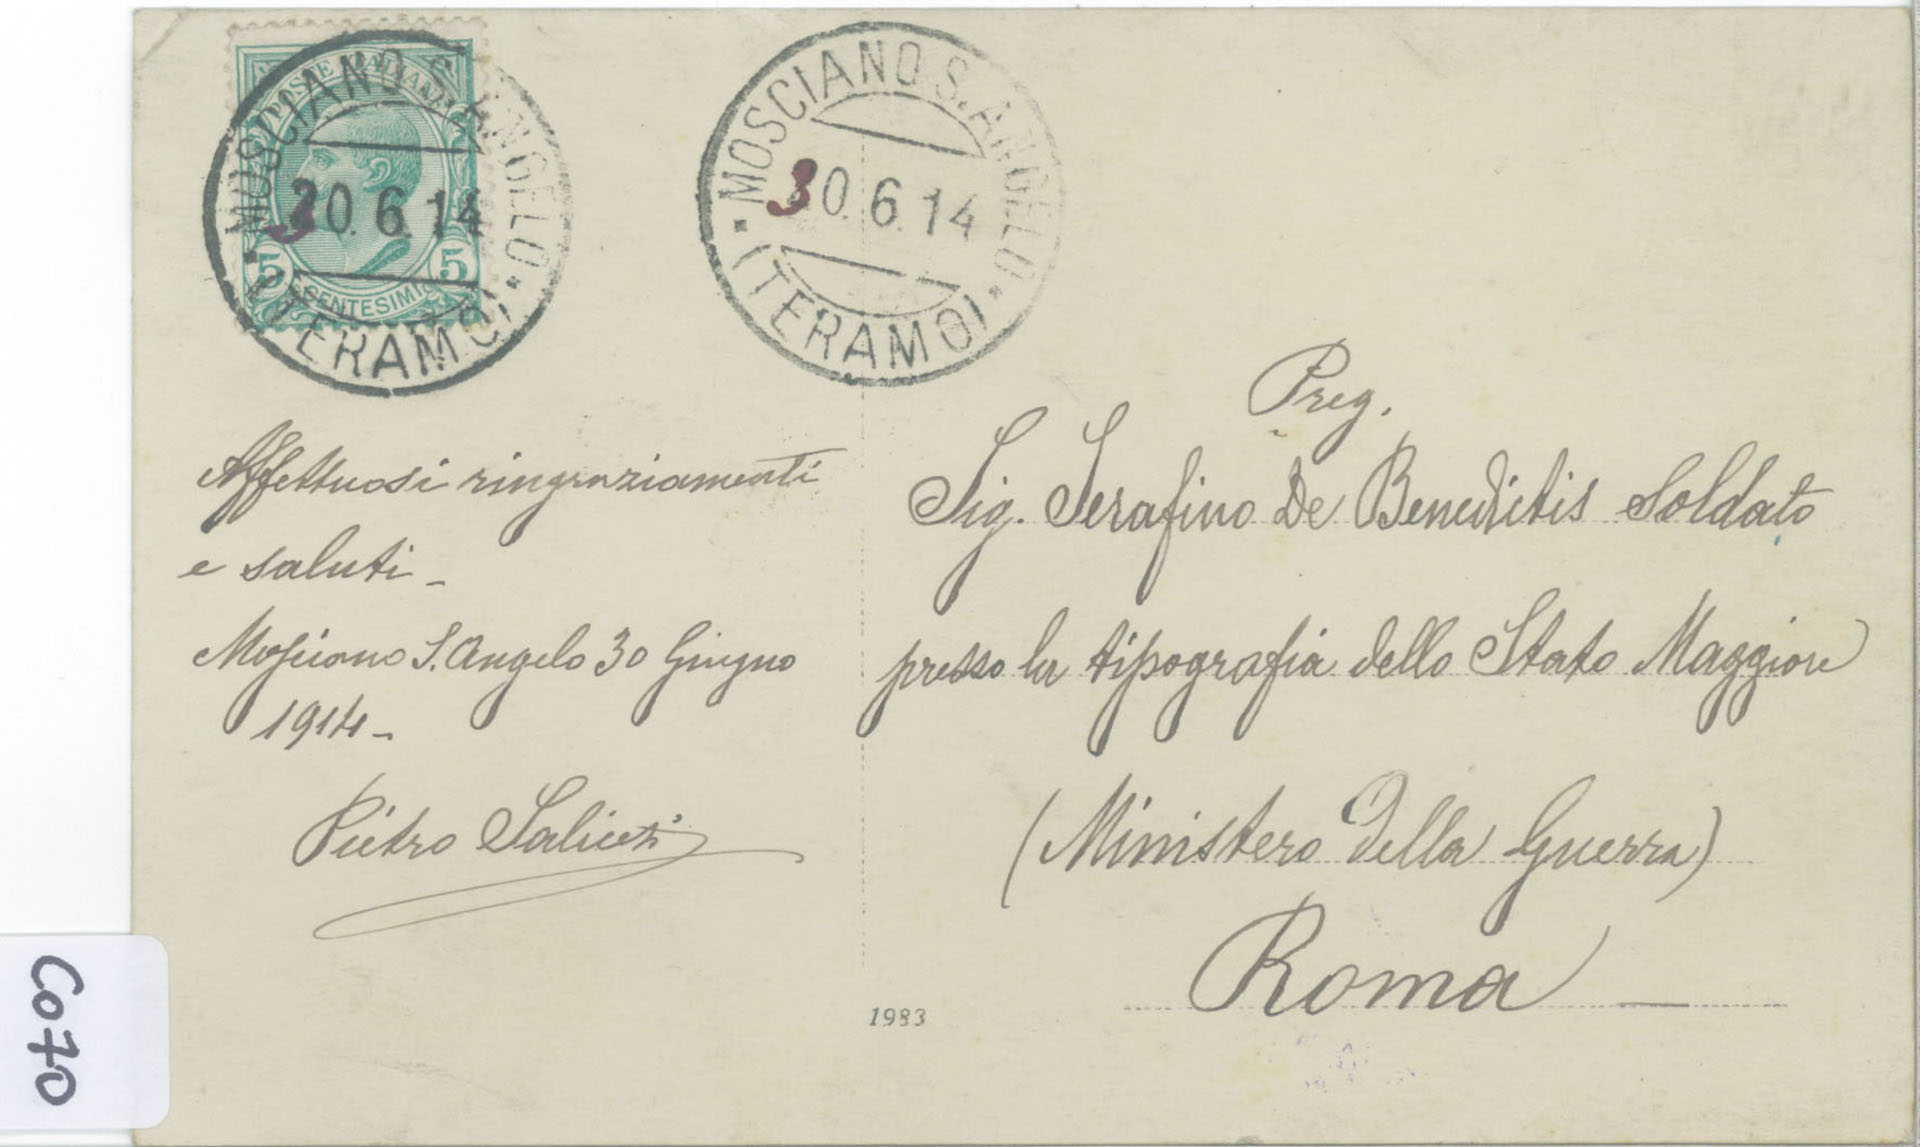 POSTE ITALIANE
5 5
CENTESIMI
MOSCIANO S. ANGELO
30.6.14
(TERAMO)
MOSCIANO S. ANGELO
30.6.14
(TERAMO)
Affettuosi ringraziamenti
e saluti -
Mosciano S. Angelo 30 Giugno
1914 -
Pietro Saliceti
Preg.
Sig. Serafino De Benedictis soldato
presso la tipografia dello Stato Maggiore
(Ministero della Guerra)
Roma
1983
C070